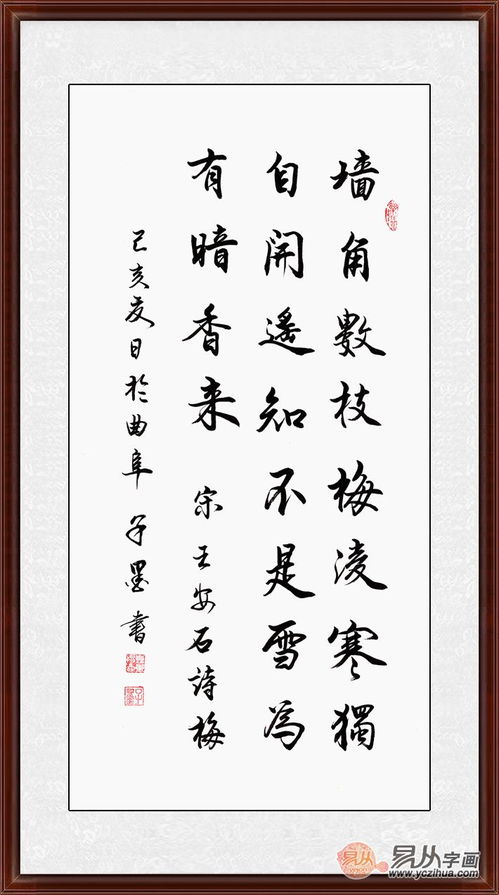 墙角數枝梅凌寒獨
自開遙知不是雪為
有暗香来 宋王安石詩梅
己亥夏日於曲阜 子墨書
易从字画
www.yczihua.com